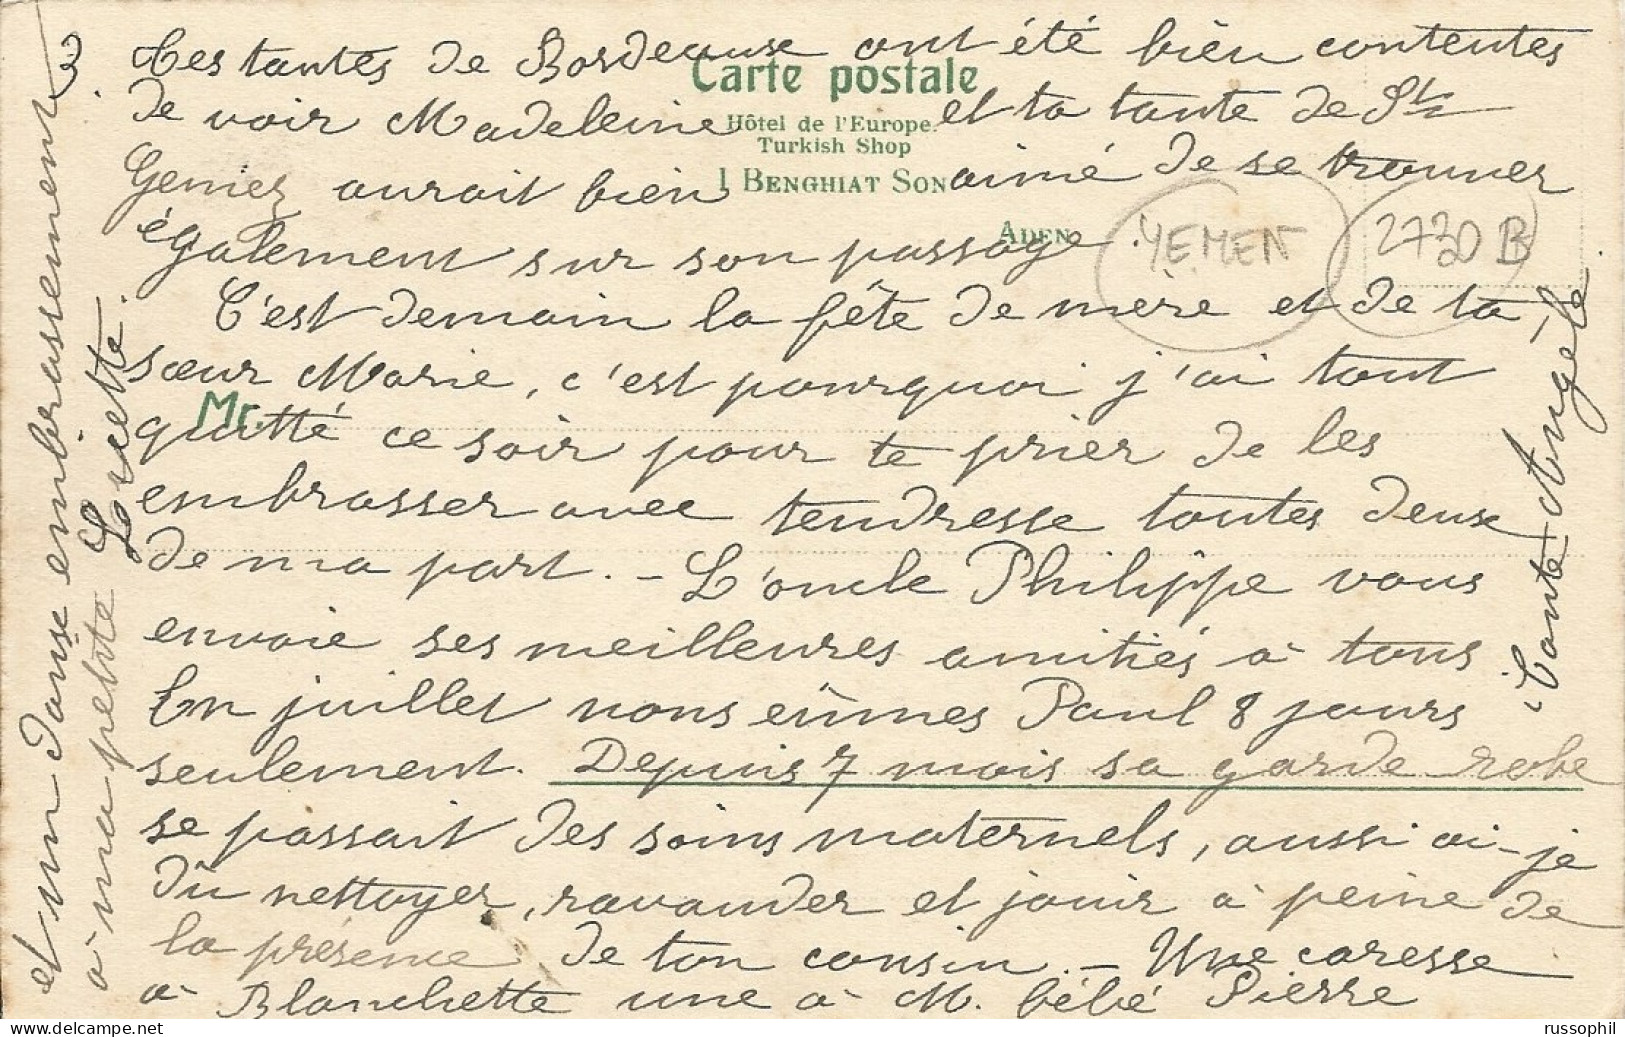 3.
Tes tantes de Bordeaux ont été bien contentes
Carte postale
de voir Madeleine et ta tante de Ste
Hôtel de l'Europe.
Turkish Shop
Geniez aurait bien aimé de se trouver
I BENGHIAT SON
également sur son passage.
ADEN
YEMEN
2730 B
C'est demain la fête de mère et de ta
sœur Marie, c'est pourquoi j'ai tout
Mr.
quitté ce soir pour te prier de les
embrasser avec tendresse toutes deux
de ma part. - L'oncle Philippe vous
envoie ses meilleures amitiés à tous
En juillet nous eûmes Paul 8 jours
seulement. Depuis 7 mois sa garde robe
se passait des soins maternels, aussi ai-je
dû nettoyer, ravauder et jouir à peine de
la présence de ton cousin. - Une caresse
à Blanchette une à M. bébé Pierre
et un doux embrassement
à ma petite Lucette.
Tante Angèle.
russophil